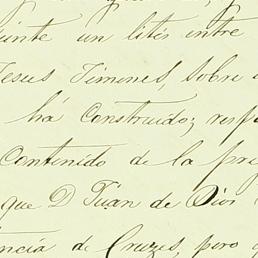 un litis entre
Jesus Jimenes, sobre
há construido; resp
Contenido de la pre
que D Juan de Dios
encia de Cruzes, pero